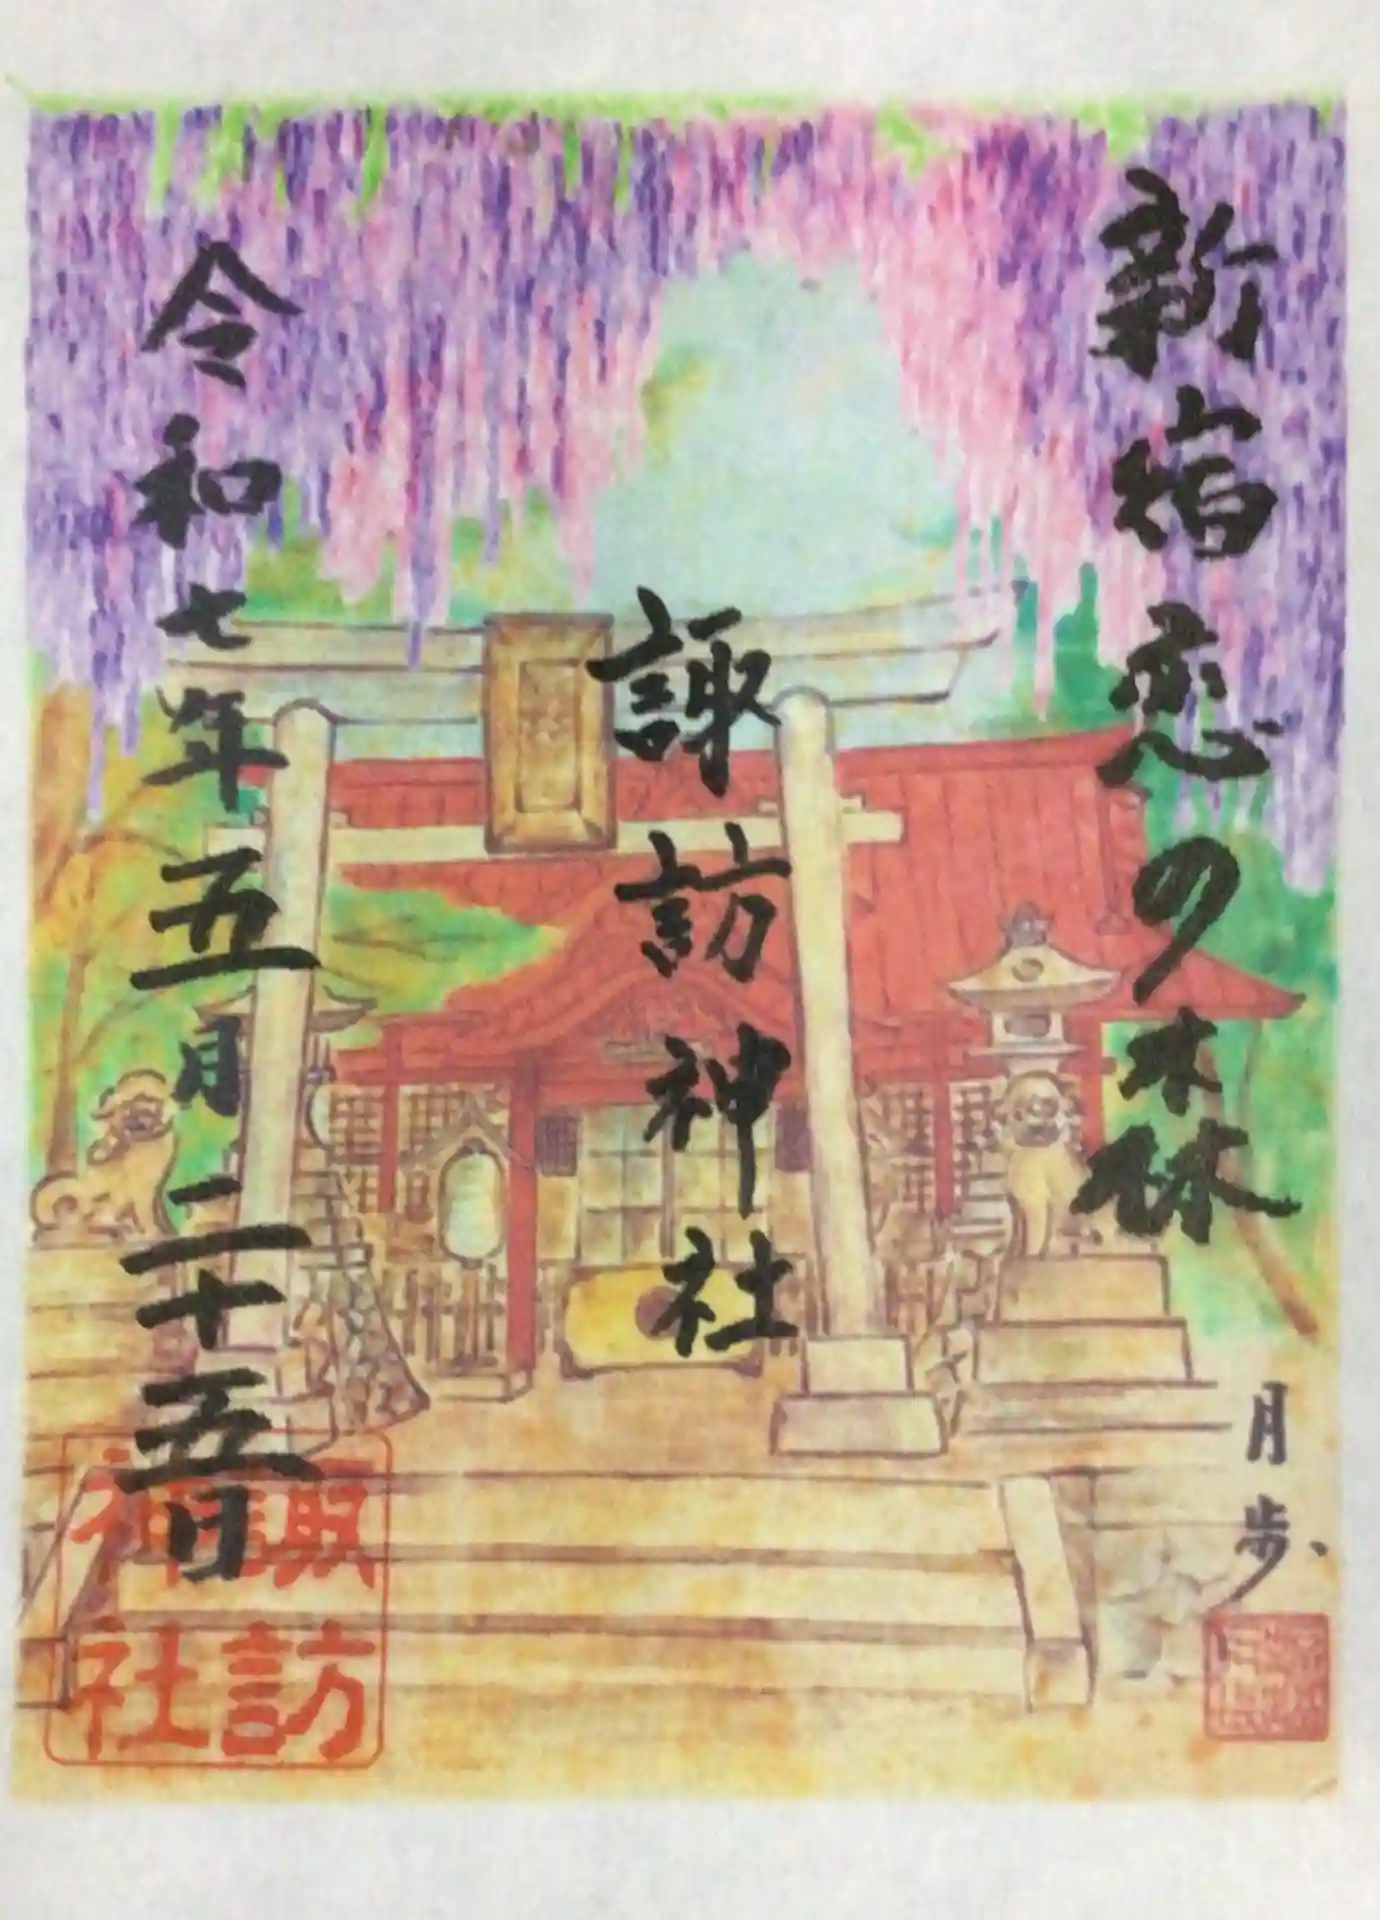 新宿恋の森
諏訪神社
令和七年五月二十五日
月歩
諏訪
神社